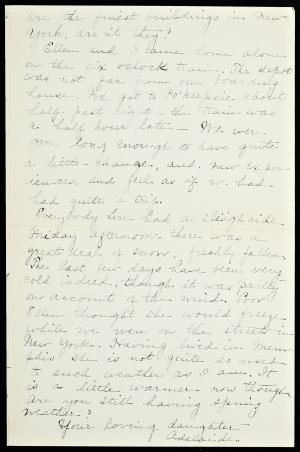 are the finest buildings in New
York, are n't they?
Ellen and I came home alone
on the six o'clock train. The depot
was not far from our boarding
house. We got to Po'keepsie about
half past eight - the train was
a half hour late - We were
gone long enough to have quite
a little change, and new exper-
iences, and feel as if we had
had quite a trip.
Everybody here had a sleighride
Friday afternoon, there was a
great deal of snow, freshly fallen.
The last few days have been very
cold indeed, though it was partly
on account of the wind. Poor
Ellen thought she would freeze
while we were on the streets in
New York. Having lived in Mem-
phis she is not quite so used
to such weather as I am. It
is a little warmer now though.
Are you still having spring
weather?
Your loving daughter
Adelaide.